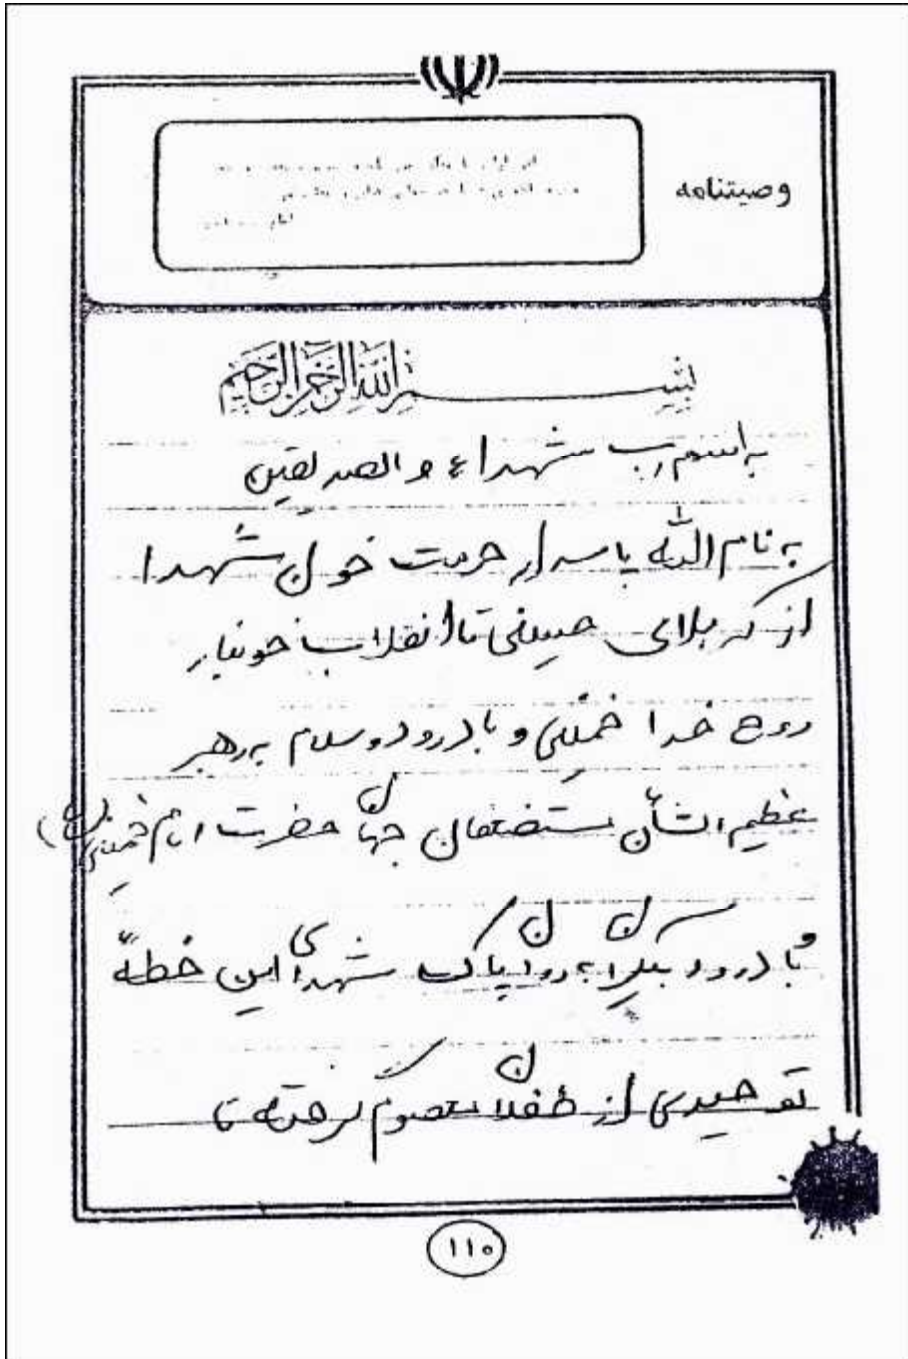 وصیتنامه
بسم الله الرحمن الرحیم
به اسم رب شهداء والصدیقین
به نام الله پاسدار حرمت خون شهدا
از کربلای حسینی تا انقلاب خونبار
روح خدا خمینی و با درود و سلام به رهبر
عظیم الشأن مستضعفان جهان حضرت امام خمینی
و با درود بیکران به روان پاک شهدای این خطهٔ
توحیدی از طفلان معصوم گرفته تا
۱۱۰